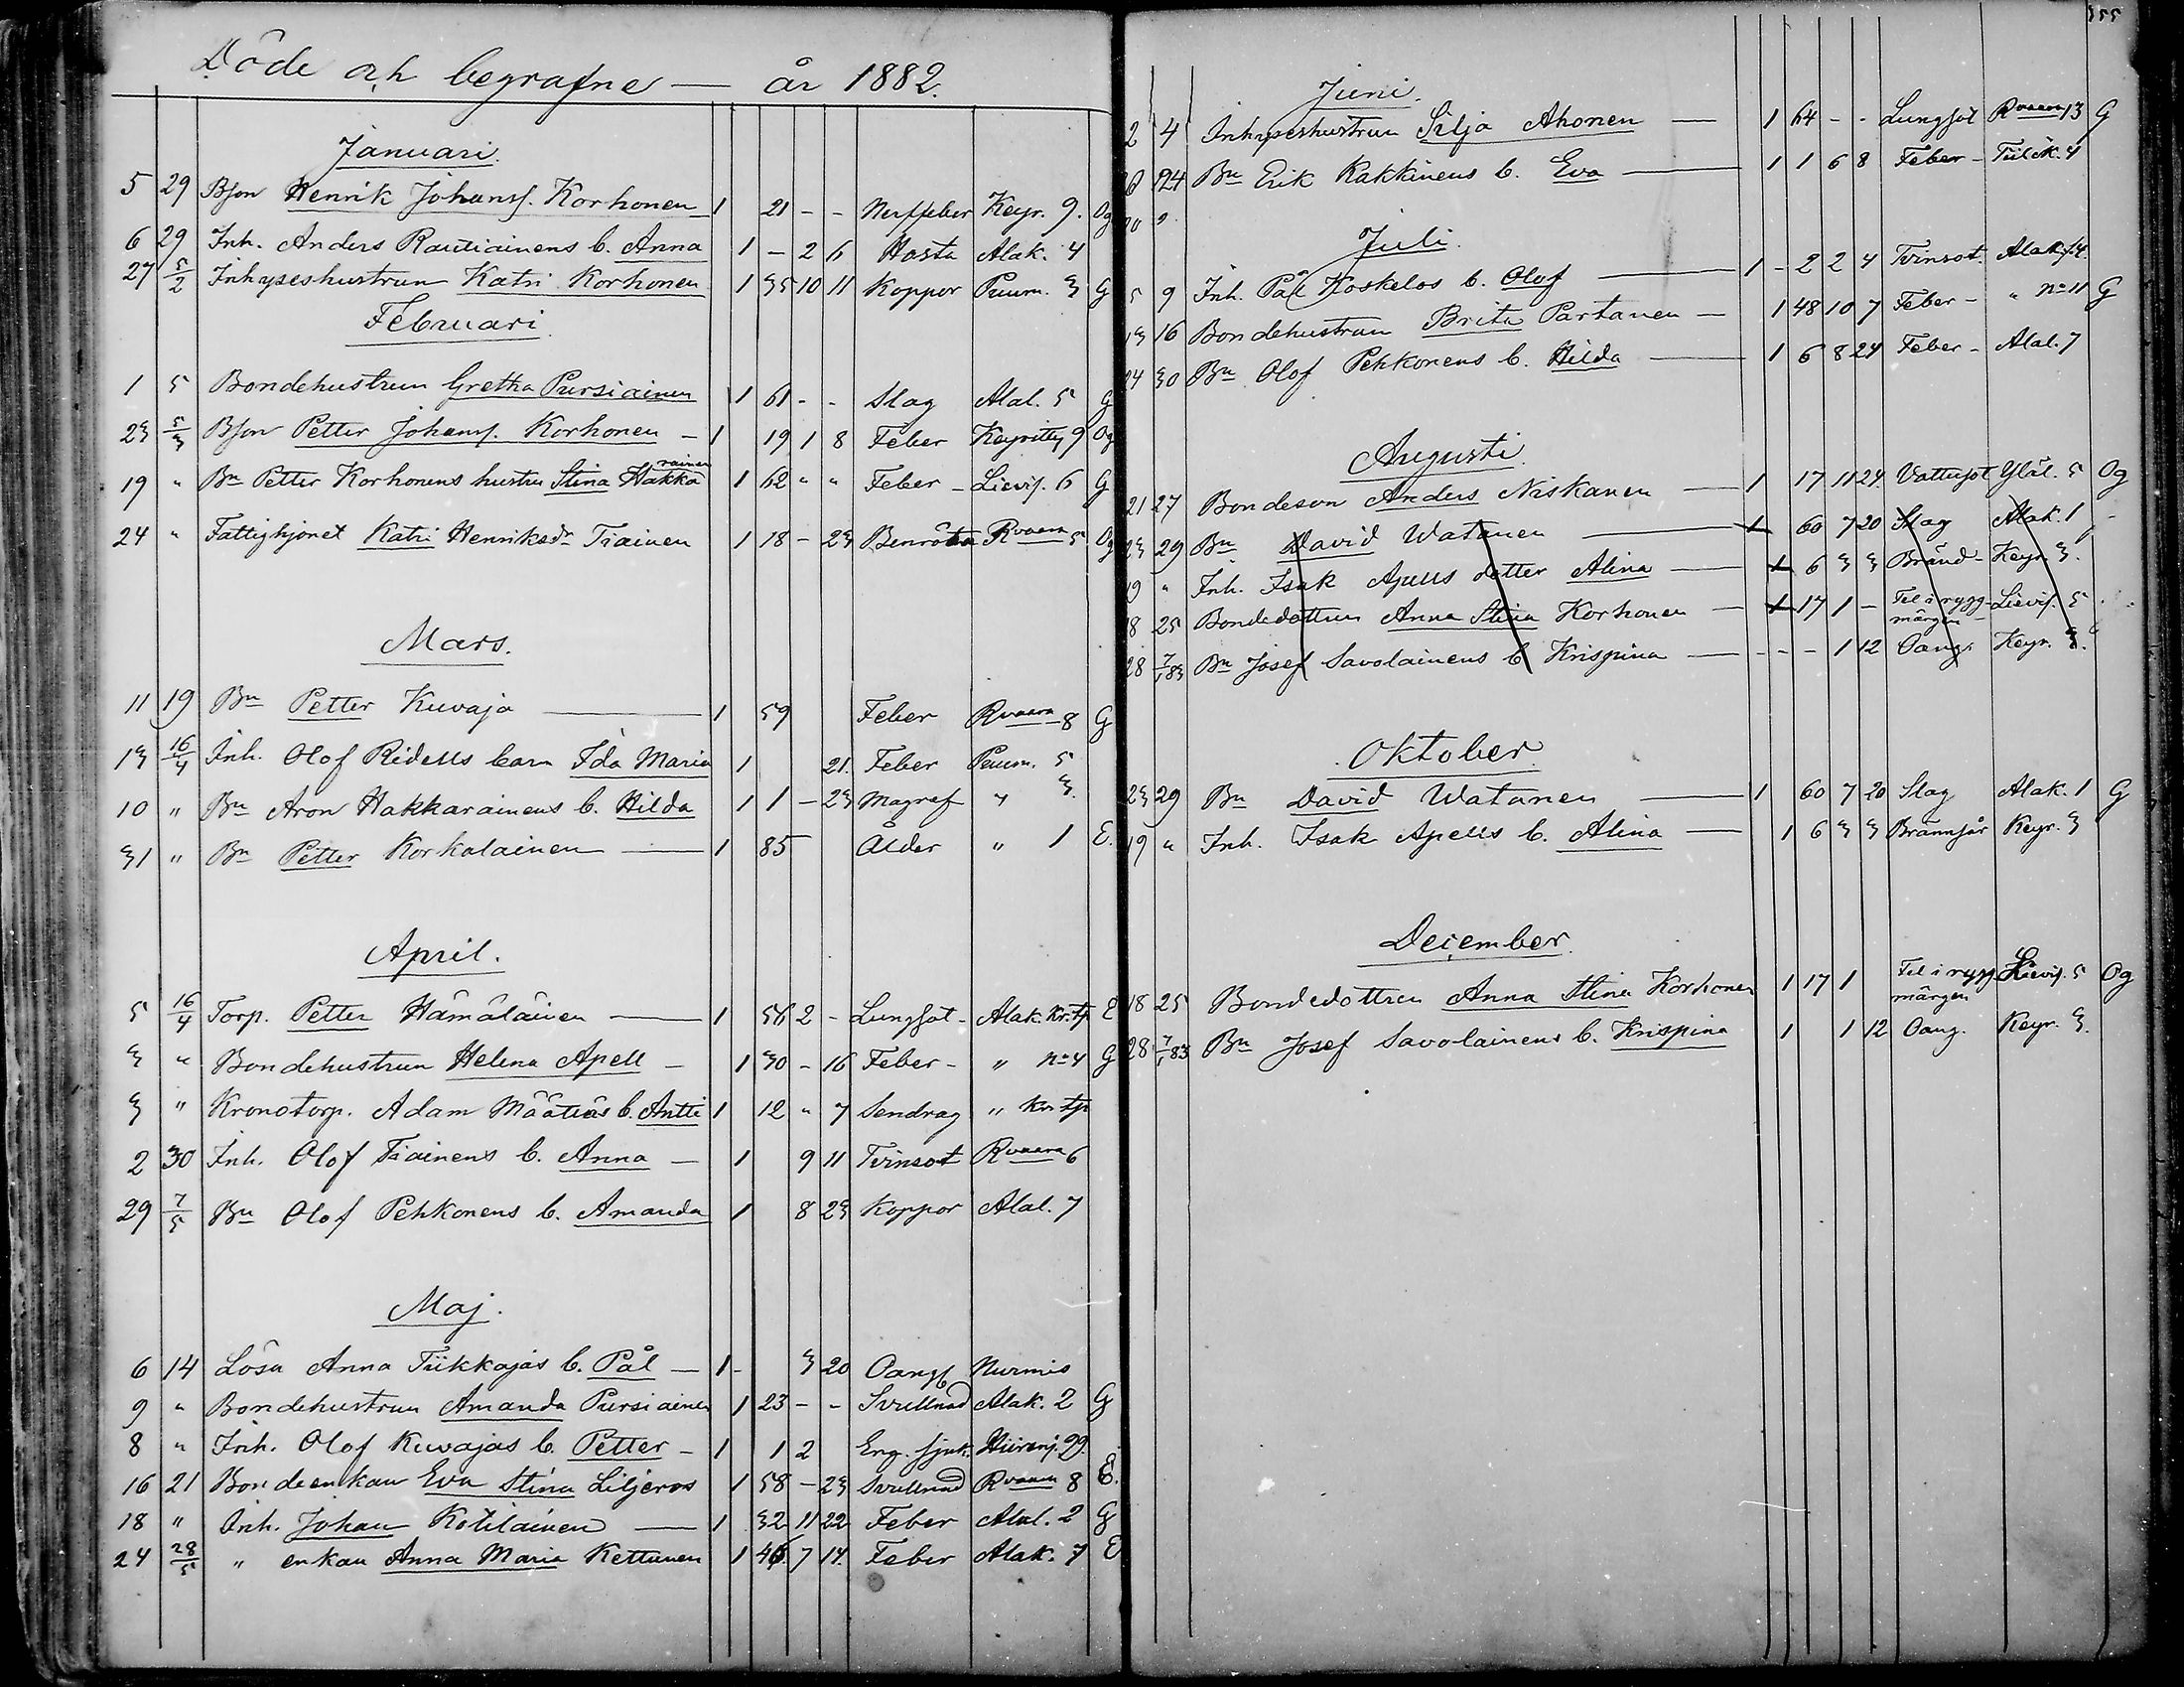 Döde och begrafne — år 1882.
Januari.
5 29 Bson Henrik Johanss. Korhonen 1 21 - - Nerffeber Keyr. 9. Og
6 29 Inh. Anders Rautiainens b. Anna 1 - 2 6 Hosta Alak. 4
27 5/2 Inhyseshustrun Katri Korhonen 1 35 10 11 Koppor Puum. 3 G
Februari
1 5 Bondehustrun Gretha Pursiainen 1 61 - - Slag Alal. 5 G
23 5/3 Bson Petter Johanss. Korhonen - 1 19 1 8 Feber Keyritty 9 Og
19 " Bn Petter Korhonens hustru Stina Hakkarainen 1 62 " " Feber - Lievis. 6 G
24 " Fattighjonet Katri Henriksdr Tiainen 1 18 - 23 Benröta Rvaara 5 Og
Mars.
11 19 Bn Petter Kuvaja — 1 59 Feber Rvaara 8 G
13 16/4 Inh. Olof Ridells barn Ida Maria 1 21. Feber Puum. 5
10 " Bn Aron Hakkarainens b. Hilda 1 1 - 23 Magref " 3.
31 " Bn Petter Korkalainen — 1 85 Ålder " 1 E.
April.
5 16/4 Torp. Petter Hämäläinen — 1 56 2 - Lungsot - Alak. Kr. tp E
3 " Bondehustrun Helena Apell - 1 30 - 16 Feber - " No 4 G
3 " Kronotorp. Adam Määttäs b. Antti 1 12 " 7 Sendrag " Kr tp
2 30 Inh. Olof Tiainens b. Anna - 1 9 11 Tvinsot Rvaara 6
29 7/5 Bn Olof Pehkonens b. Amanda 1 8 23 Koppor Alal. 7
Maj.
6 14 Lösa Anna Tiikkajas b. Pål - 1 - 3 20 Oangf Nurmis
9 " Bondehustrun Amanda Pursiainen 1 23 - - Svullnad Alak. 2 G
8 " Inh. Olof Kuvajas b. Petter - 1 1 2 Eng. sjuk. Hiirenj. 29.
16 21 Bondeenkan Eva Stina Liljeros 1 58 - 23 Svullnad Rvaara 8 E.
18 " Inh. Johan Kotilainen — 1 32 11 22 Feber Alal. 2 G
24 28/5 " enkan Anna Maria Kettunen 1 46 7 14. Feber Alak. 7 E
355
Juni.
2 4 Inhyseshustrun Silja Ahonen — 1 64 - - Lungsot Rvaara 13 G
24 Bn Erik Kakkinens b. Eva — 1 1 6 8 Feber - Tiilik. 4
Juli.
5 9 Inh. Pål Koskelos b. Olof — 1 - 2 2 4 Tvinsot. Alak. 14.
13 16 Bondehustrun Brita Partanen - 1 48 10 7 Feber - " No 11 G
24 30 Bn Olof Pehkonens b. Hilda — 1 6 8 24 Feber - Alal. 7
Augusti
21 27 Bondeson Anders Niskanen — 1 17 11 24. Vattusot Yläl. 5 Og
23 29 Bn David Watanen — 1 60 7 20 Slag Alak. 1
19 " Inh. Isak Apells dotter Alina — 1 6 3 3 Bränd - Keyr. 3.
18 25 Bondedottren Anna Stina Korhonen - 1 17 1 - Fel i rygg- Lievis. 5
märgen
28 7/1 83 Bn Josef Savolainens b Krispina — - - 1 12 Oang. Keyr. 3.
Oktober
23 29 Bn David Watanen — 1 60 7 20 Slag Alak. 1 G
19 " Inh. Isak Apells b. Alina — 1 6 3 3 Brännsår Keyr. 3
December
18 25 Bondedottren Anna Stina Korhonen 1 17 1 Fel i rygg Lievis. 5 Og
märgen
28 7/1 83 Bn Josef Savolainens b. Krispina 1 1 12 Oang. Keyr. 3.